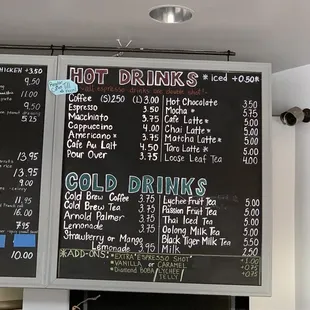 CHICKEN +3.50
9.50
11.00
9.50
5.25
13.95
13.95
9.00
11.95
16.00
9.95
10.00
HOT DRINKS * iced +0.50*
*all espresso drinks are double shot*
Coffee (S)2.50 (L)3.00
Espresso 3.50
Macchiato 3.75
Cappuccino 4.00
Americano * 3.75
Cafe Au Lait 4.50
Pour Over 3.75
Hot Chocolate 3.50
Mocha * 5.75
Cafe Latte * 5.00
Chai Latte * 5.00
Matcha Latte * 5.00
Taro Latte * 5.00
Loose Leaf Tea 4.00
COLD DRINKS
Cold Brew Coffee 3.75
Cold Brew Tea 3.75
Arnold Palmer 3.75
Lemonade 3.75
Strawberry or Mango
Lemonade 3.95
Lychee Fruit Tea 5.00
Passion Fruit Tea 5.00
Thai Iced Tea 5.00
Oolong Milk Tea 5.00
Black Tiger Milk Tea 5.50
Milk 2.50
*ADD-ONS:
*EXTRA ESPRESSO SHOT +1.00
*VANILLA or CARAMEL +0.75
*Diamond BOBA / LYCHEE JELLY +0.75